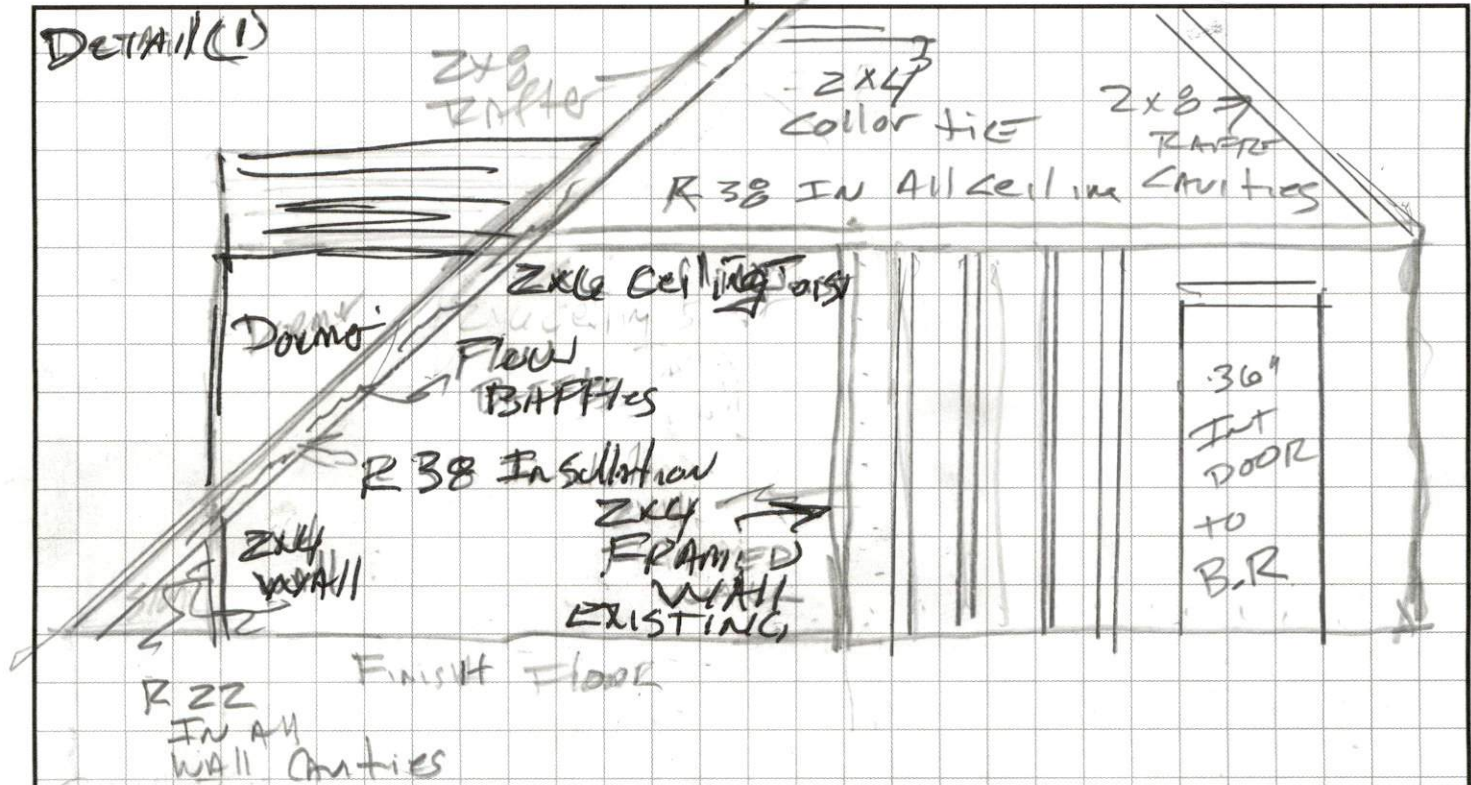 DETAIl(1)
2x8
RAfter
2x4
Collor tiE
2x8
RAFTR
R 38 IN All Ceiling CAvities
2x6 Ceiling Joist
Dormer
Flow
BAFFles
R 38 Insullation
2x4
WAll
2x4
FRAMED
WAll
EXISTING
36"
INT
DOOR
to
B.R
FINISH FlOOR
R 22
IN All
WAll CAvities